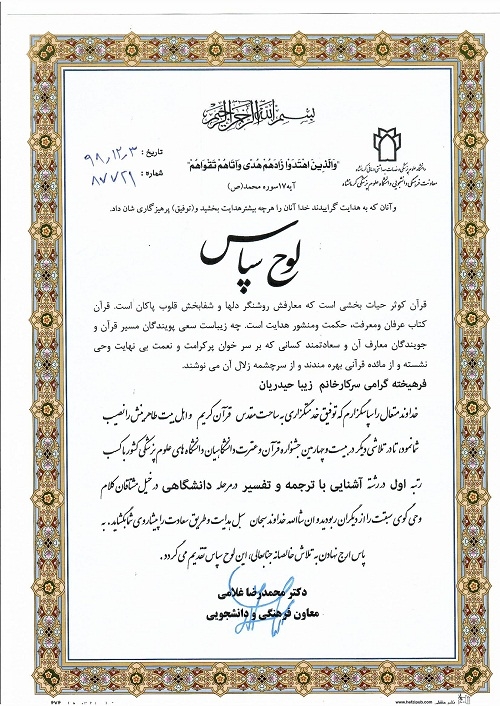 بسم الله الرحمن الرحیم
دانشگاه علوم پزشکی و خدمات بهداشتی درمانی کرمانشاه
معاونت فرهنگی دانشجویی دانشگاه علوم پزشکی کرمانشاه
تاریخ : ۹۸,۱۲,۳
شماره : ۸۷۷۲۱
"وَالَّذِینَ اهْتَدَوْا زَادَهُمْ هُدًى وَآتَاهُمْ تَقْوَاهُمْ"
آیه ۱۷ سوره محمد(ص)
و آنان که به هدایت گراییدند خدا آنان را هرچه بیشتر هدایت بخشید و(توفیق) پرهیزگاری شان داد.
لوح سپاس
قرآن کوثر حیات بخشی است که معارفش روشنگر دلها و شفابخش قلوب پاکان است. قرآن
کتاب عرفان ومعرفت، حکمت ومنشور هدایت است. چه زیباست سعی پویندگان مسیر قرآن و
جویندگان معارف آن و سعادتمند کسانی که بر سر خوان پرکرامت و نعمت بی نهایت وحی
نشسته و از مائده قرآنی بهره مندند و از سرچشمه زلال آن می نوشند.
فرهیخته گرامی سرکارخانم زیبا حیدریان
خداوند متعال را سپاسگزارم که توفیق خدمتگزاری به ساحت مقدس قرآن کریم و اهل بیت طاهرینش را نصیب
شما نمود، تا در تلاشی دیگر در بیست و چهارمین جشنواره قرآن و عترت دانشگاهیان دانشگاه های علوم پزشکی کشور با کسب
رتبه اول در رشته آشنایی با ترجمه و تفسیر در مرحله دانشگاهی در خیل مشتاقان کلام
وحی گوی سبقت را از دیگران ربودید و ان شاالله خداوند سبحان سبل هدایت و طریق سعادت را پیشاروی شما بگشاید. به
پاس ارج نهادن به تلاش خالصانه جنابعالی؛ این لوح سپاس تقدیم می گردد.
دکتر محمدرضا غلامی
معاون فرهنگی و دانشجویی
www.hafizpub.com